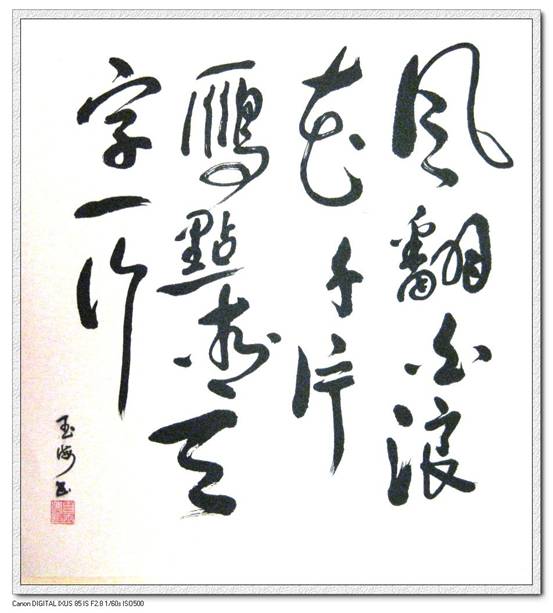 風翻白浪
花千片
鴈點青天
字一行
玉海书
Canon DIGITAL IXUS 85 IS F2.8 1/60s ISO500